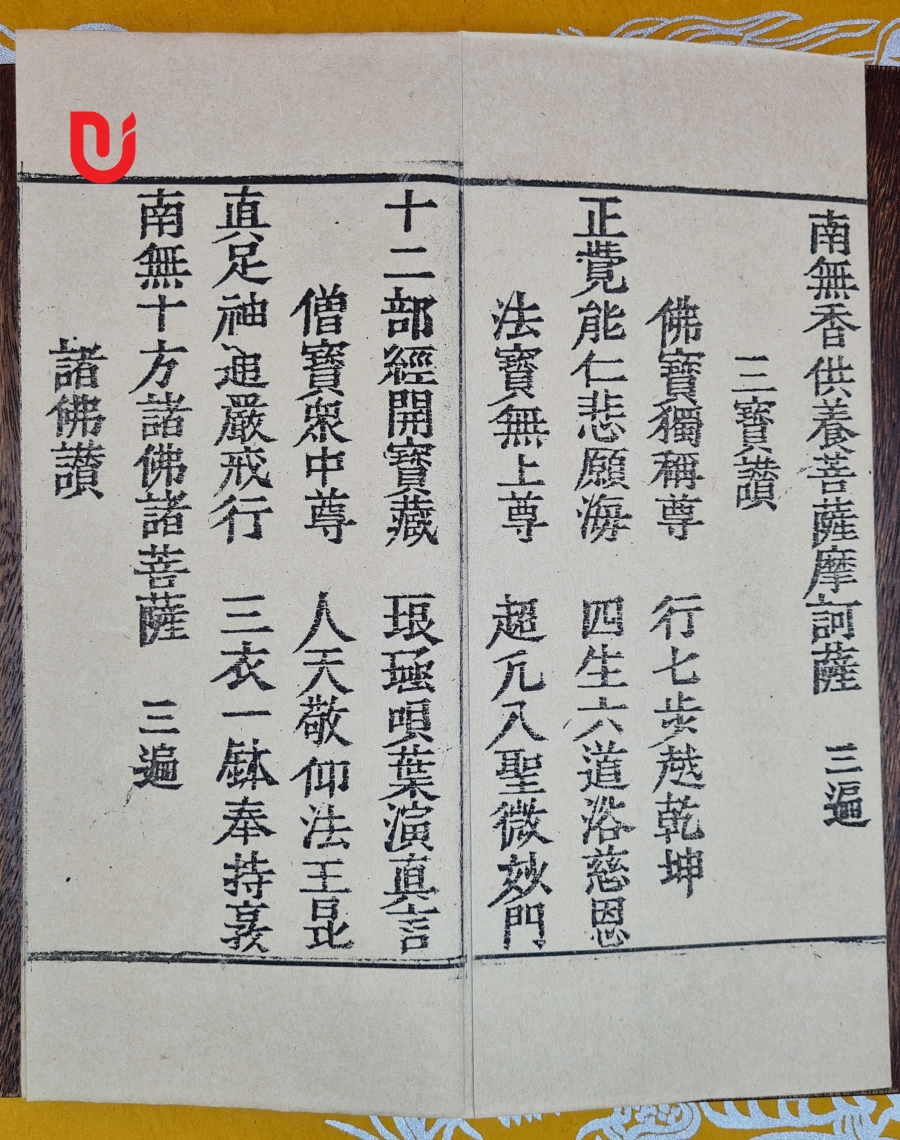 南無香供養菩薩摩訶薩 三遍
三寶讚
佛寶獨稱尊 行七步越乾坤
正覺能仁悲願海 四生六道沐慈恩
法寶無上尊 超凡入聖微妙門
十二部經開寶藏 琅函唄葉演真言
僧寶衆中尊 人天敬仰法王昆
真足神通嚴戒行 三衣一鉢奉持敦
南無十方諸佛諸菩薩 三遍
諸佛讃